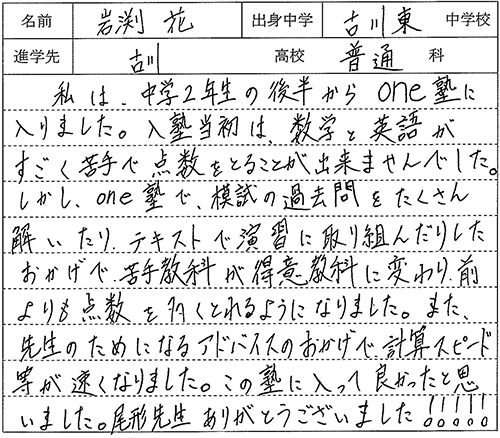 名前 岩渕 花 出身中学 古川東 中学校
進学先 古川 高校 普通 科
私は、中学2年生の後半からone塾に
入りました。入塾当初は、数学と英語が
すごく苦手で点数をとることが出来ませんでした。
しかし、one塾で、模試の過去問をたくさん
解いたり、テキストで演習に取り組んだりした
おかげで、苦手教科が得意教科に変わり、前
よりも点数を多くとれるようになりました。また、
先生のためになるアドバイスのおかげで、計算スピード
等が速くなりました。この塾に入って良かったと思
いました。尾形先生ありがとうございました!!!!!